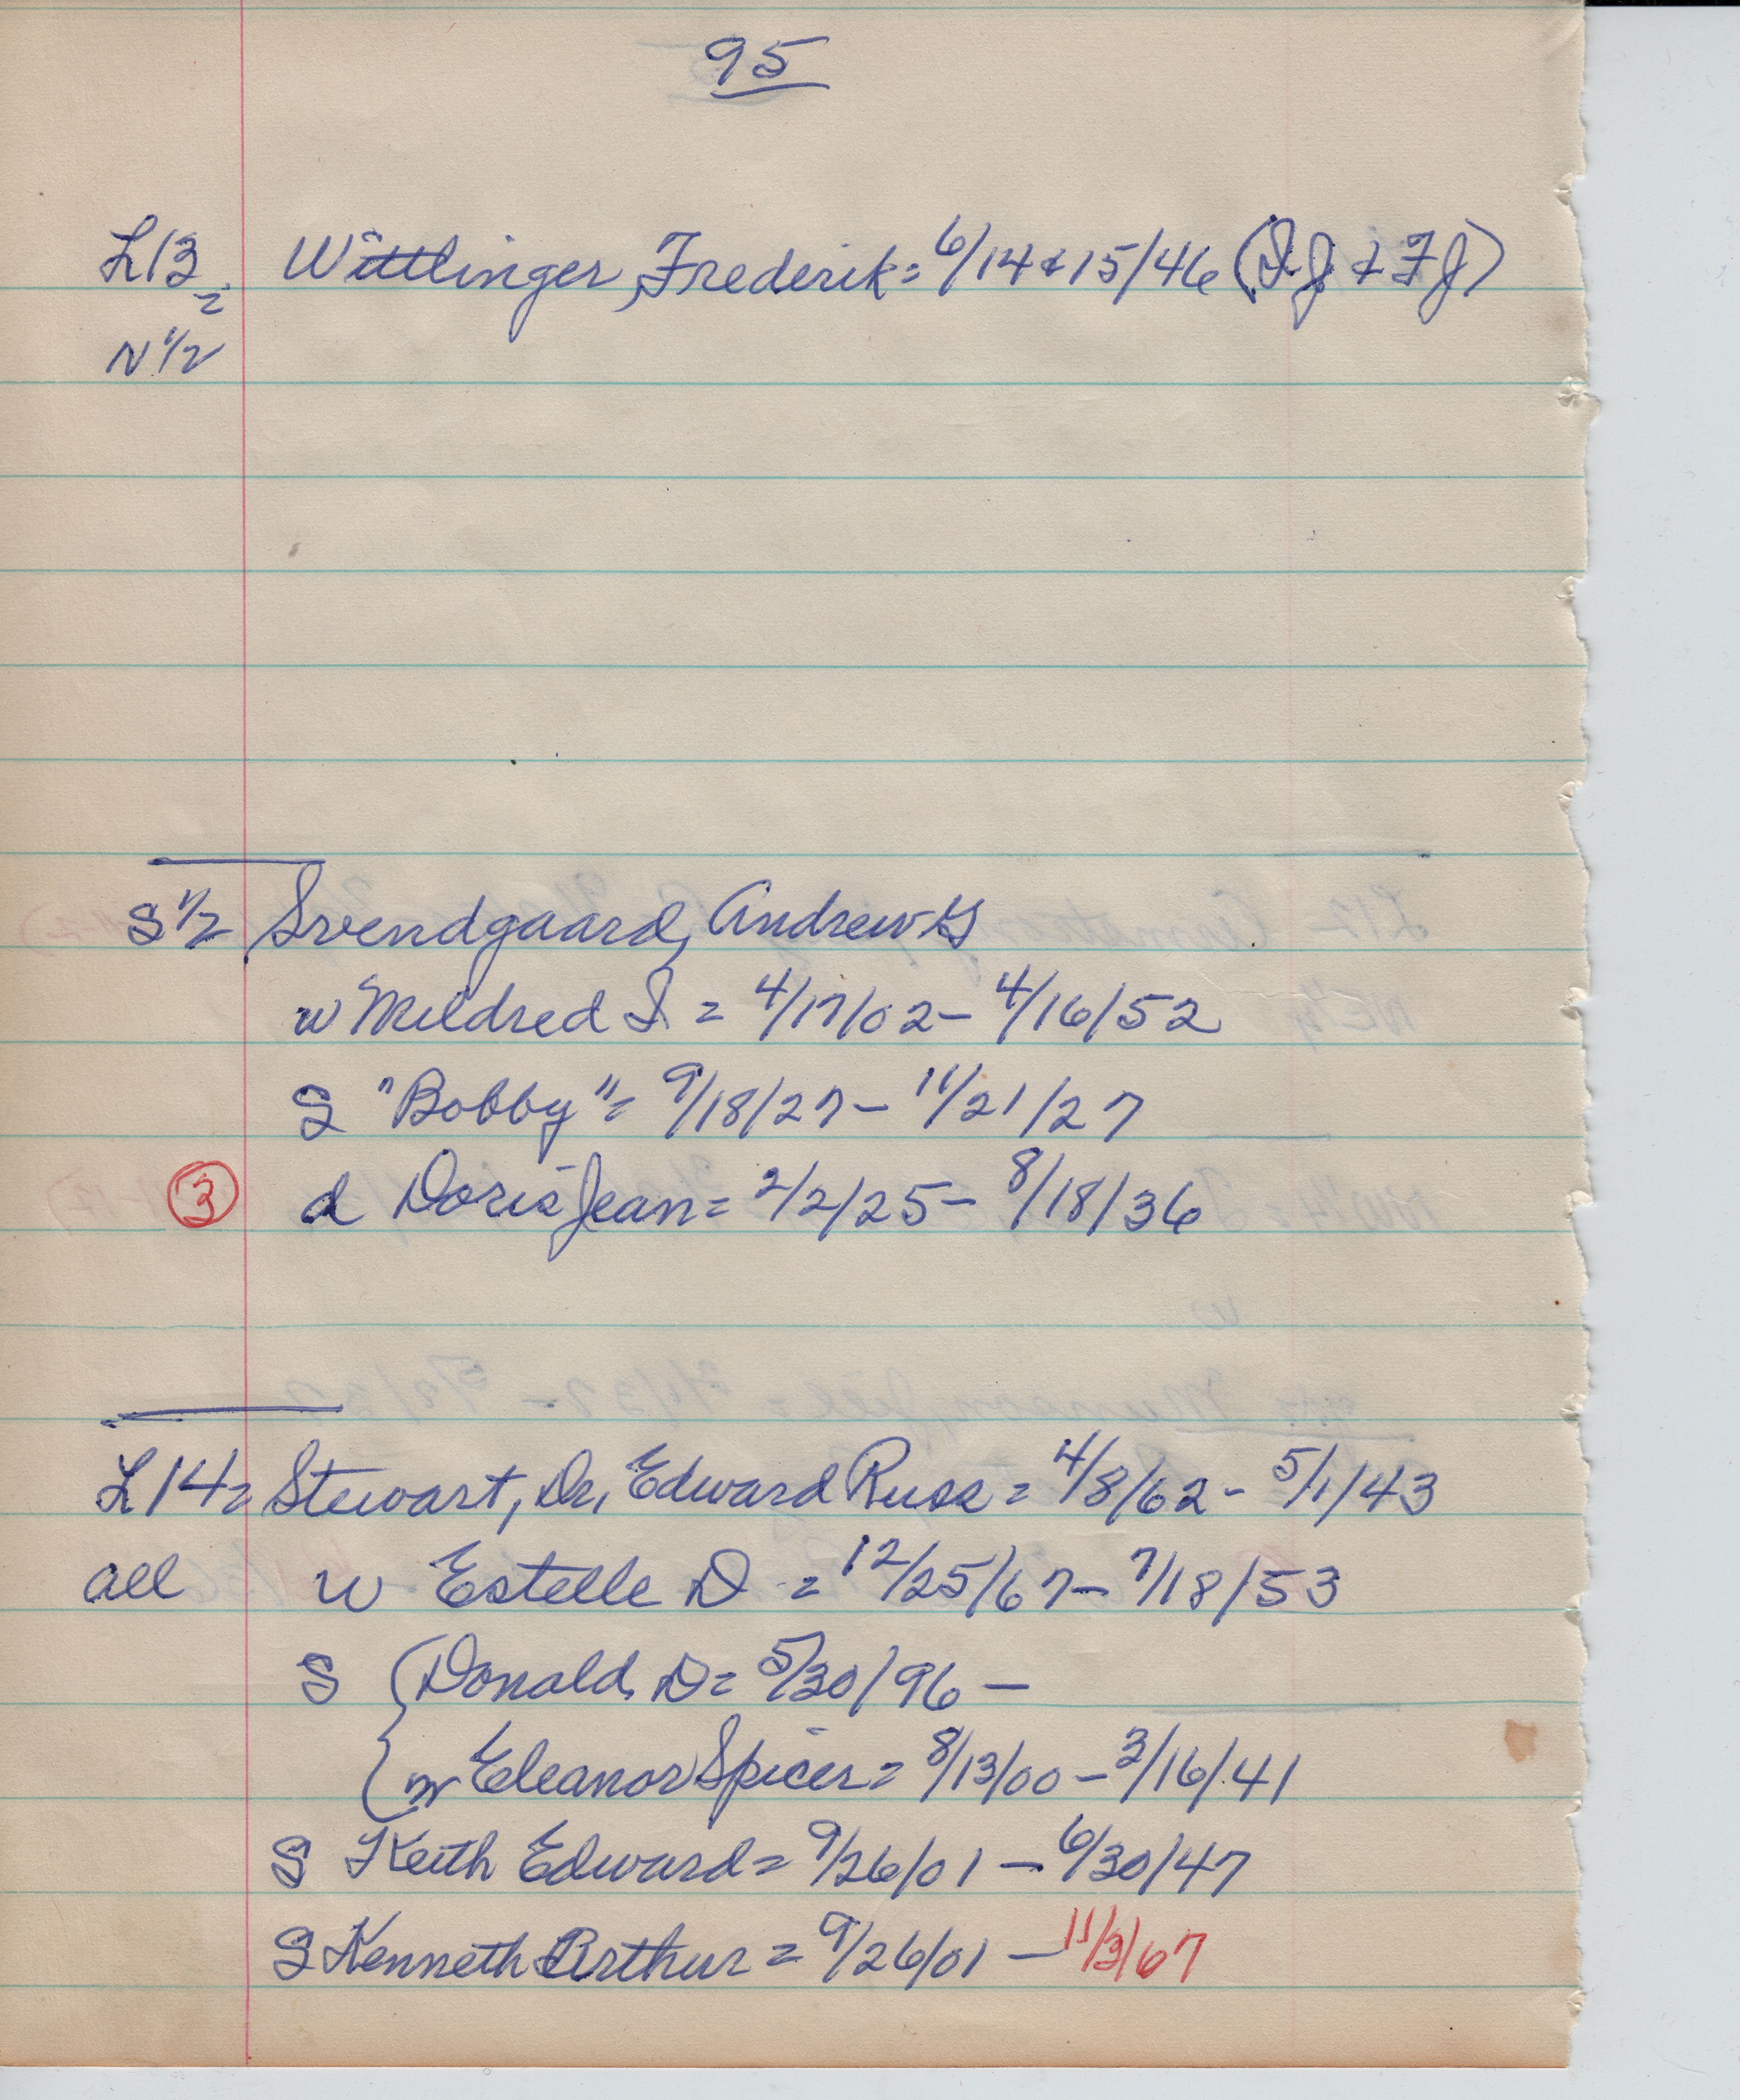 95
L13= Wittlinger, Frederik = 6/14 & 15/46 (D.J & F J)
N 1/2
S 1/2 Svendgaard, Andrew G
w Mildred S. = 4/17/02 - 4/16/52
S "Bobby" = 9/18/27 - 11/21/27
③ d Doris Jean = 2/2/25 - 8/18/36
L14= Stewart, Dr, Edward Russ = 4/8/62 - 5/1/43
all w Estelle D = 12/25/67 - 7/18/53
S (Donald D = 5/30/96 -
{ w Eleanor Spicer = 8/13/00 - 3/16/41
S Keith Edward = 9/26/01 - 6/30/47
S Kenneth Arthur = 9/26/01 - 11/3/67